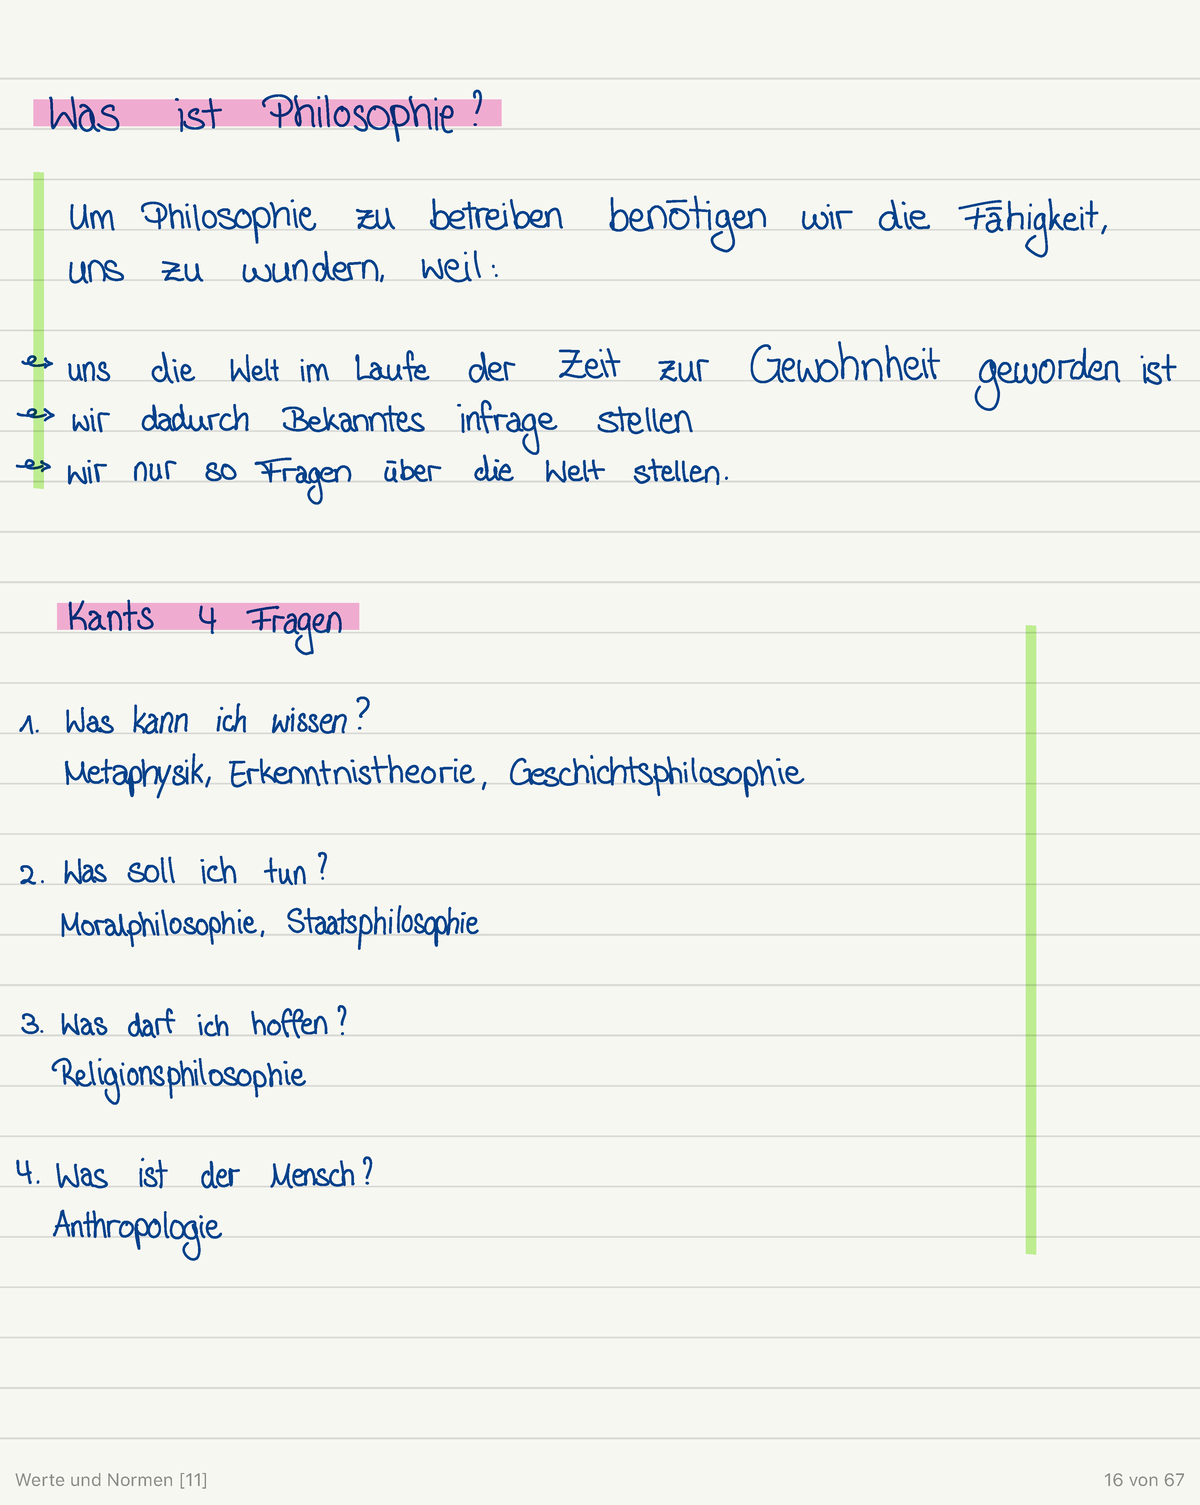 Was ist Philosophie?
Um Philosophie zu betreiben benötigen wir die Fähigkeit,
uns zu wundern, weil:
↝ uns die Welt im Laufe der Zeit zur Gewohnheit geworden ist
↝ wir dadurch Bekanntes infrage stellen
↝ wir nur so Fragen über die Welt stellen.
Kants 4 Fragen
1. Was kann ich wissen?
Metaphysik, Erkenntnistheorie, Geschichtsphilosophie
2. Was soll ich tun?
Moralphilosophie, Staatsphilosophie
3. Was darf ich hoffen?
Religionsphilosophie
4. Was ist der Mensch?
Anthropologie
Werte und Normen [11]
16 von 67